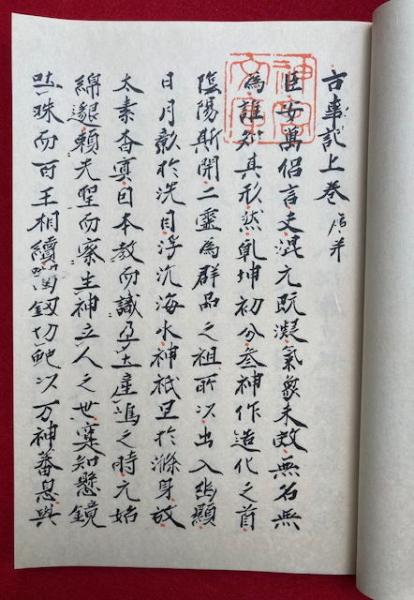 神宮
文庫
古事記上卷 序并
臣安萬侶言夫混元既凝氣象未效無名無
為誰知其形然乾坤初分叄神作造化之首
陰陽斯開二靈為群品之祖所以出入幽顯
日月彰於洗目浮沉海水神祇呈於滌身故
太素杳冥因本教而識孕土產嶋之時元始
綿邈頼先聖而察生神立人之世寔知懸鏡
吐珠而百王相續喫釼切蛇以万神蕃息與